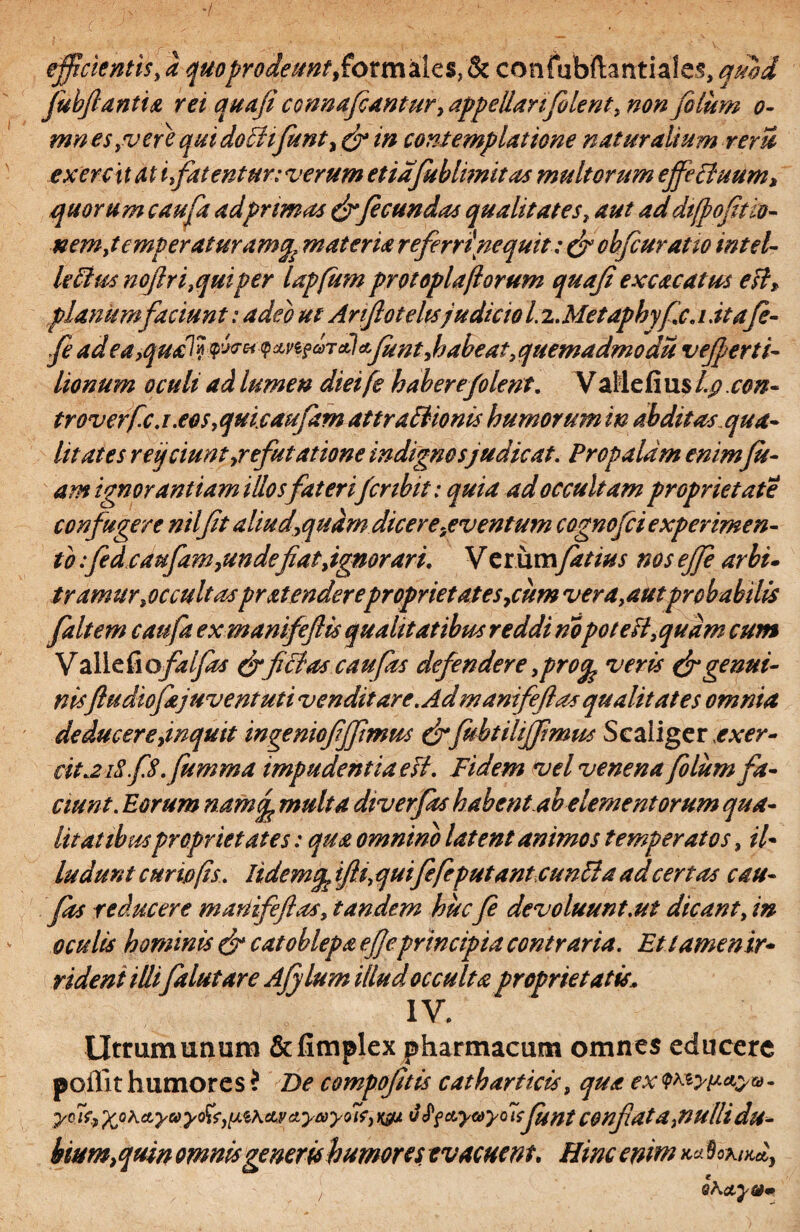 efficientis, à quo prodeunt, formales, & consubstantiales, quòd
substantiæ rei quasi connascantur, appellari solent, non solùm o-
mnes, verè qui docti sunt, & in contemplatione naturalium rerū
exercitati, fatentur: verum etiā sublimitas multorum effectuum,
quorum causa ad primas & secundas qualitates, aut ad dispositio-
nem, temperaturamq; materiæ referri nequit: & obscuratio intel-
lectus nostri, qui per lapsum protoplastorum quasi excæcatus est,
planum faciunt: adeò ut Aristotelis judicio l.2. Metaphys.c.1. ita se-
se ad ea, quæ τῇ φύσει φανερώτατα sunt, habeat, quemadmodū vesperti-
lionum oculi ad lumen diei se habere solent. Vallesius l.p. con-
trovers.c.1. eos, qui causam attractionis humorum in abditas qua-
litates reijciunt, refutatione indignos judicat. Propalàm enim su-
am ignorantiam illos fateri scribit: quia ad occultam proprietatē
confugere nil sit aliud, quàm dicere, eventum cognosci experimen-
to: sed causam, unde fiat, ignorari. Verùm satius nos esse arbi-
tramur, occultas prætendere proprietates, cùm vera, aut probabilis
saltem causa ex manifestis qualitatibus reddi nō potest, quàm cum
Vallesio falsas & fictas causas defendere, proq; veris & genui-
nis studiosæ juventuti venditare. Ad manifestas qualitates omnia
deducere, inquit ingeniosissimus & subtilissimus Scaliger exer-
cit. 218.s.8. summa impudentia est. Fidem vel venena solùm fa-
ciunt. Eorum namq; multa diversas habent ab elementorum qua-
litatibus proprietates: quæ omninò latent animos temperatos, il-
ludunt curiosis. Iidemq; isti, qui sese putant cuncta ad certas cau-
sas reducere manifestas, tandem hùc se devoluunt, ut dicant, in
oculis hominis & catoblepæ esse principia contraria. Et tamen ir-
rident illi salutare Asylum illud occultæ proprietatis.
IV.
Utrum unum & simplex pharmacum omnes educere
possit humores? De compositis catharticis, quæ ex φλεγμαγω-
γοῖς, χολαγωγοῖς, μελαναγωγοῖς, καὶ ὑδραγωγοῖς sunt conflata, nulli du-
bium, quin omnis generis humores evacuent. Hinc enim καθολικὰ,
ὁλαγω-